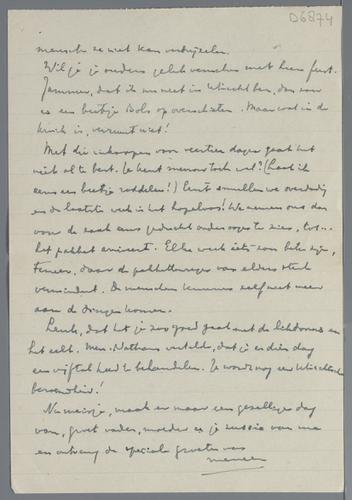 D6874
mensch ze niet kan verdrijven.
Wil je je ouders geluk wenschen met hun feest.
Jammer, dat ik nu niet in Utrecht ben, dan zou
er een beetje Bols op overschieten. Maar wat in de
kruik is, verzuurt niet!
Met die inkoopen voor veertien dagen gaat het
niet al te best. Je kent mevrouw toch wel? (Laat ik
eens een beetje roddelen!) Eerst smullen we overdadig
en de laatste week is het hopeloos! We nemen ons dan
voor de zaak eens geducht onder oogen te zien, tot
het pakket arriveert. Elke week iets zou beter zijn,
temeer, daar de pakkettenregen van elders sterk
vermindert. De menschen kunnen zelf niet meer
aan de dingen komen.
Leuk, dat het je zoo goed gaat met de lichdoorns en
het eelt. Mevr. Nathans vertelde, dat je er dien dag
een vijftal had te behandelen. Je wordt nog een Utrechtsche
beroemdheid!
Nu meisje, maak er maar een gezellige dag
van, groet vader, moeder en je zussie van me
en ontvang de speciale groeten van
meneer